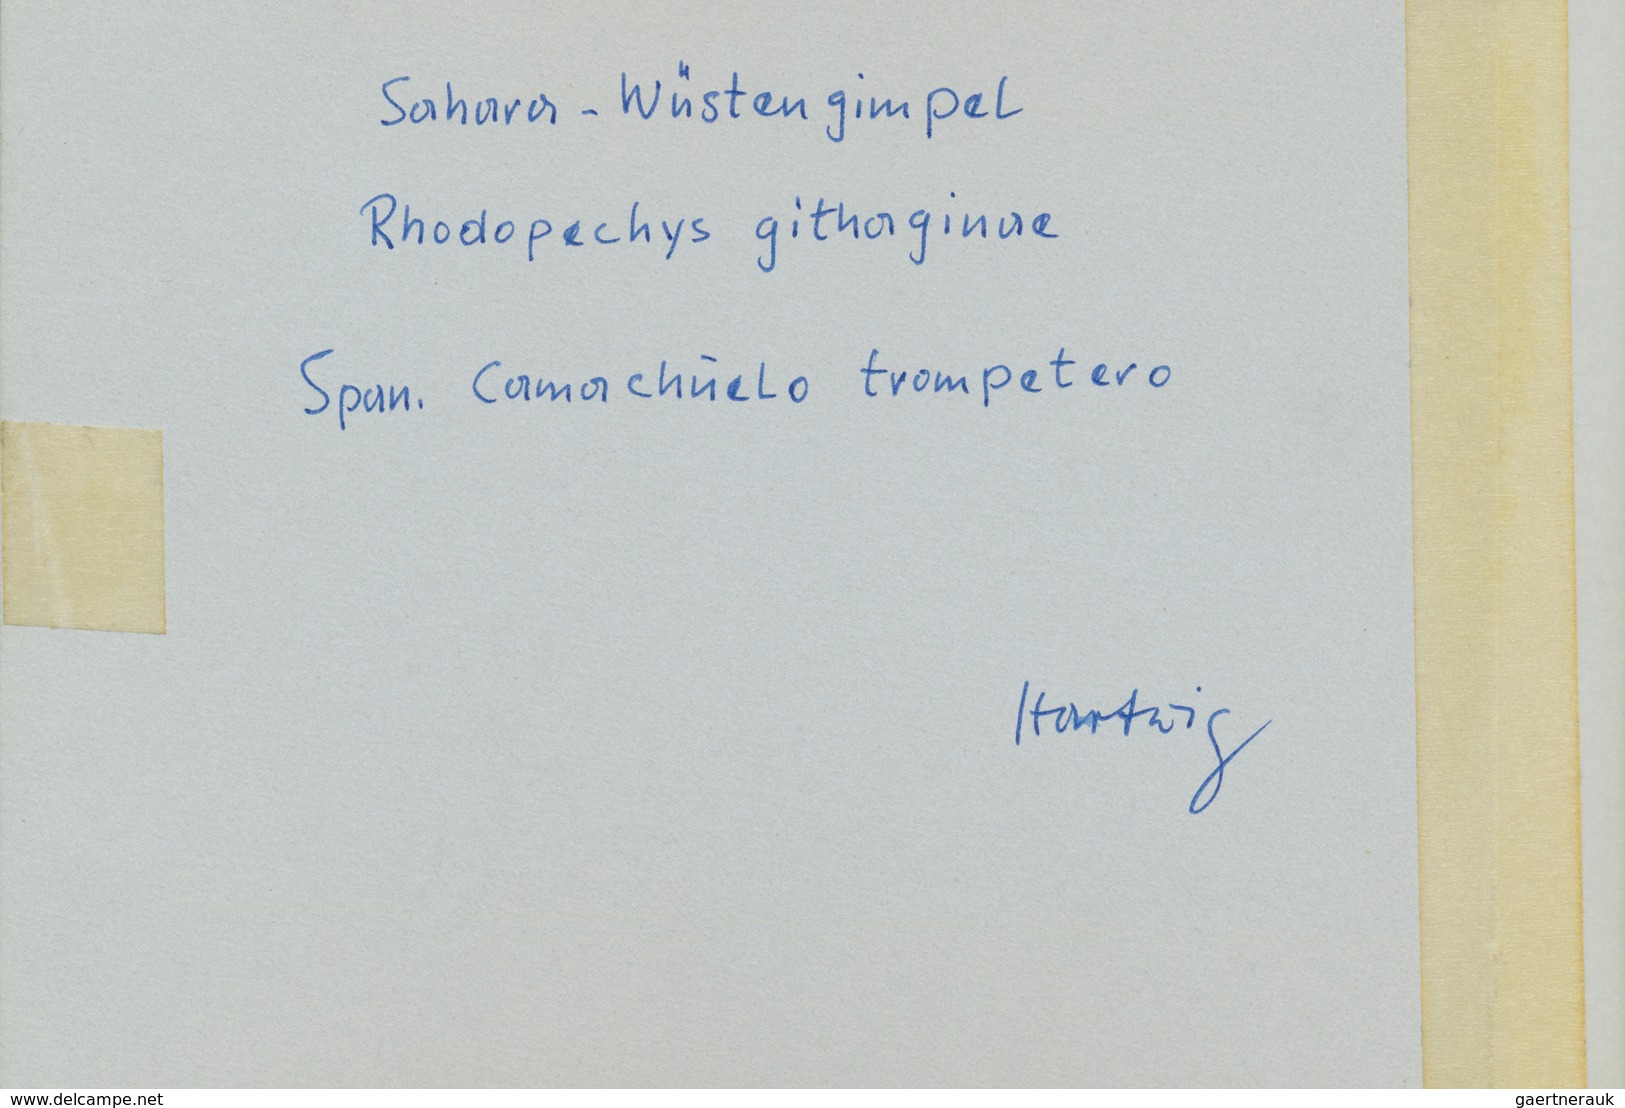 Sahara - Wüstengimpel
Rhodopechys githaginae
Span. Camachŭelo trompetero
Hartwig
www.delcampe.net
gaertnerauk